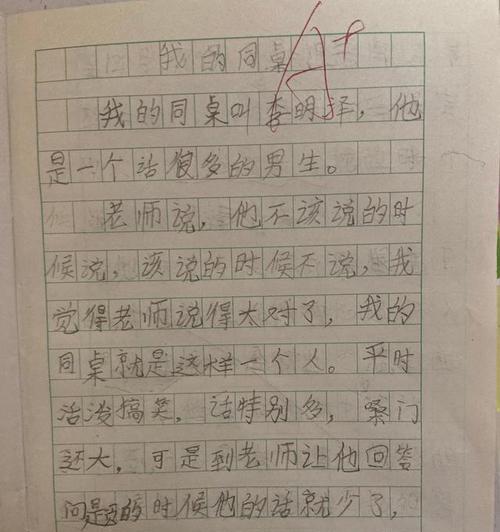 我的同桌 A+
我的同桌叫李明泽，他
是一个话很多的男生。
老师说，他不该说的时
候说，该说的时候不说，我
觉得老师说得太对了，我的
同桌就是这样一个人。平时
活泼搞笑，话特别多，嗓门
还大，可是到老师让他回答
问题的时候他的话就少了，